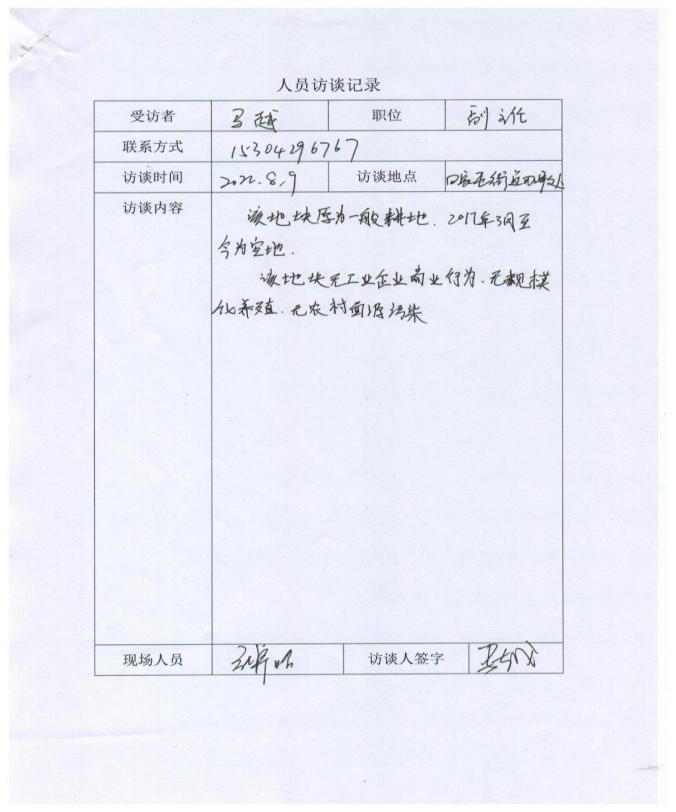 人员访谈记录
受访者 马越 职位 副主任
联系方式 15304296767
访谈时间 2022.8.9 访谈地点 街道办事处
访谈内容 该地块原为一般耕地，2017年3月至
今为空地.
该地块无工业企业商业行为.无规模
化养殖.无农村面源污染
现场人员 访谈人签字